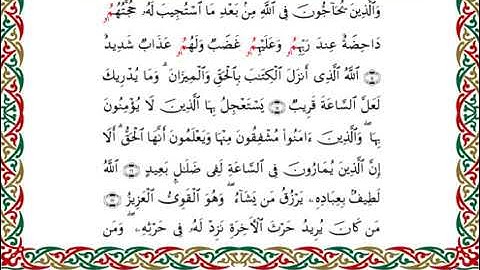 وَٱلَّذِينَ يُحَآجُّونَ فِى ٱللَّهِ مِنۢ بَعْدِ مَا ٱسْتُجِيبَ لَهُۥ حُجَّتُهُمُۥ
دَاحِضَةٌ عِندَ رَبِّهِمُۥ وَعَلَيْهِمُۥ غَضَبٌ وَلَهُمُۥ عَذَابٌ شَدِيدٌ
ٱللَّهُ ٱلَّذِىٓ أَنزَلَ ٱلْكِتَٰبَ بِٱلْحَقِّ وَٱلْمِيزَانَ ۗ وَمَا يُدْرِيكَ
لَعَلَّ ٱلسَّاعَةَ قَرِيبٌ يَسْتَعْجِلُ بِهَا ٱلَّذِينَ لَا يُؤْمِنُونَ
بِهَا ۖ وَٱلَّذِينَ ءَامَنُوا۟ مُشْفِقُونَ مِنْهَا وَيَعْلَمُونَ أَنَّهَا ٱلْحَقُّ ۗ أَلَآ
إِنَّ ٱلَّذِينَ يُمَارُونَ فِى ٱلسَّاعَةِ لَفِى ضَلَٰلٍۭ بَعِيدٍ ٱللَّهُ
لَطِيفٌۢ بِعِبَادِهِۦ يَرْزُقُ مَن يَشَآءُ ۖ وَهُوَ ٱلْقَوِىُّ ٱلْعَزِيزُ
مَن كَانَ يُرِيدُ حَرْثَ ٱلْأَخِرَةِ نَزِدْ لَهُۥ فِى حَرْثِهِۦ ۖ وَمَن